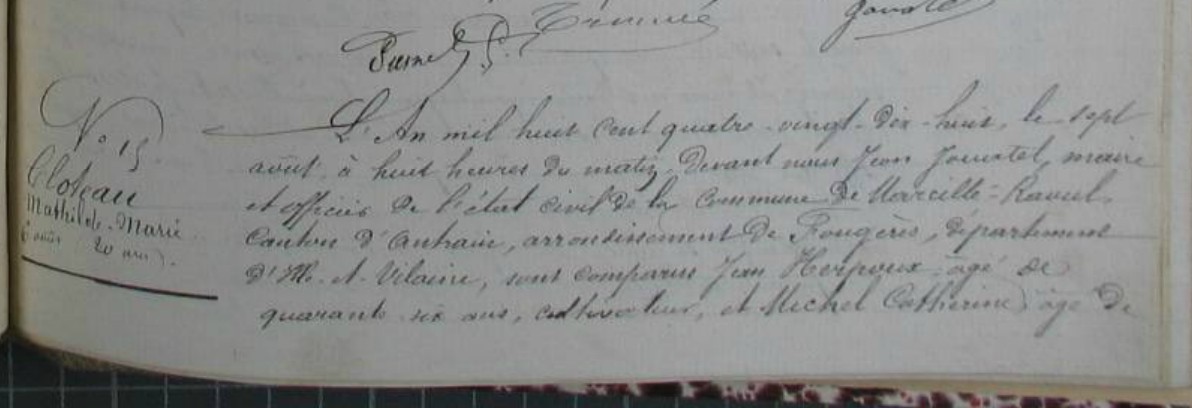 Nº 15
Cloteau
Mathilde-Marie
6 août (20 ans).
L'An mil huit cent quatre-vingt-dix-huit, le sept
août, à huit heures du matin. Devant nous Jean Jouvtel, maire
et officier de l'état civil de la Commune de Marcillé-Raoul,
Canton d'Antrain, arrondissement de Fougères, département
d'Ille-et-Vilaine, sont comparus Jean Herpeux âgé de
quarante six ans, cultivateur, et Michel Catherine âgé de